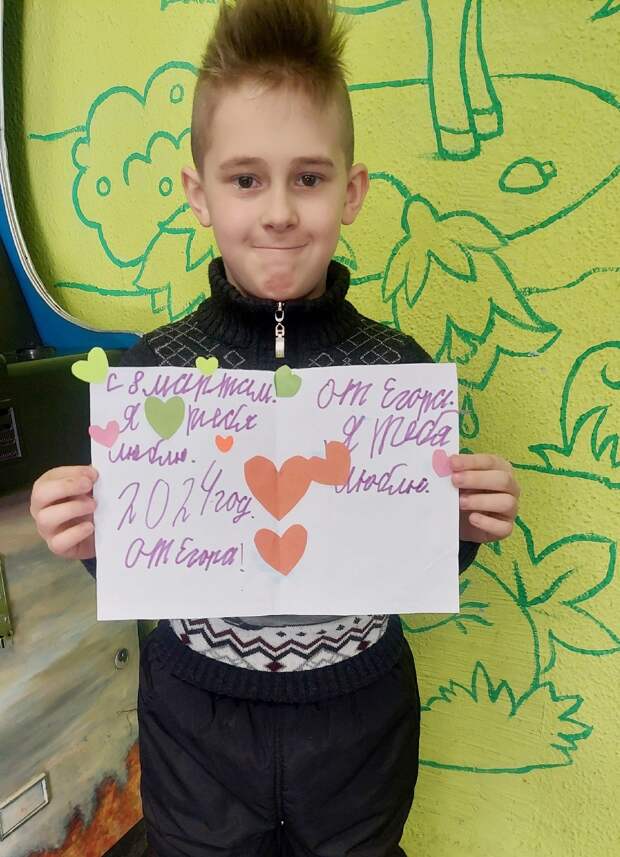 с 8 мартам.
Я тебя
люблю.
2024 год.
от Егора!
от Егора.
Я тебя
люблю.